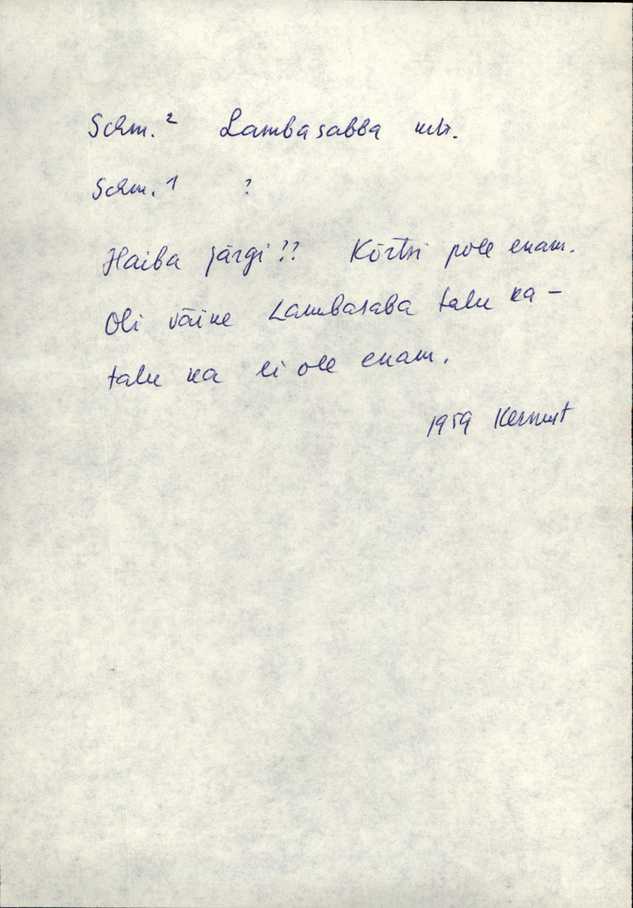 Schm.² Lambasabba krh.
Schm.1 ?
Haiba järgi?? Kõrtsi pole enam.
Oli väike Lambasaba talu ka –
talu ka ei ole enam.
1959 Kernust